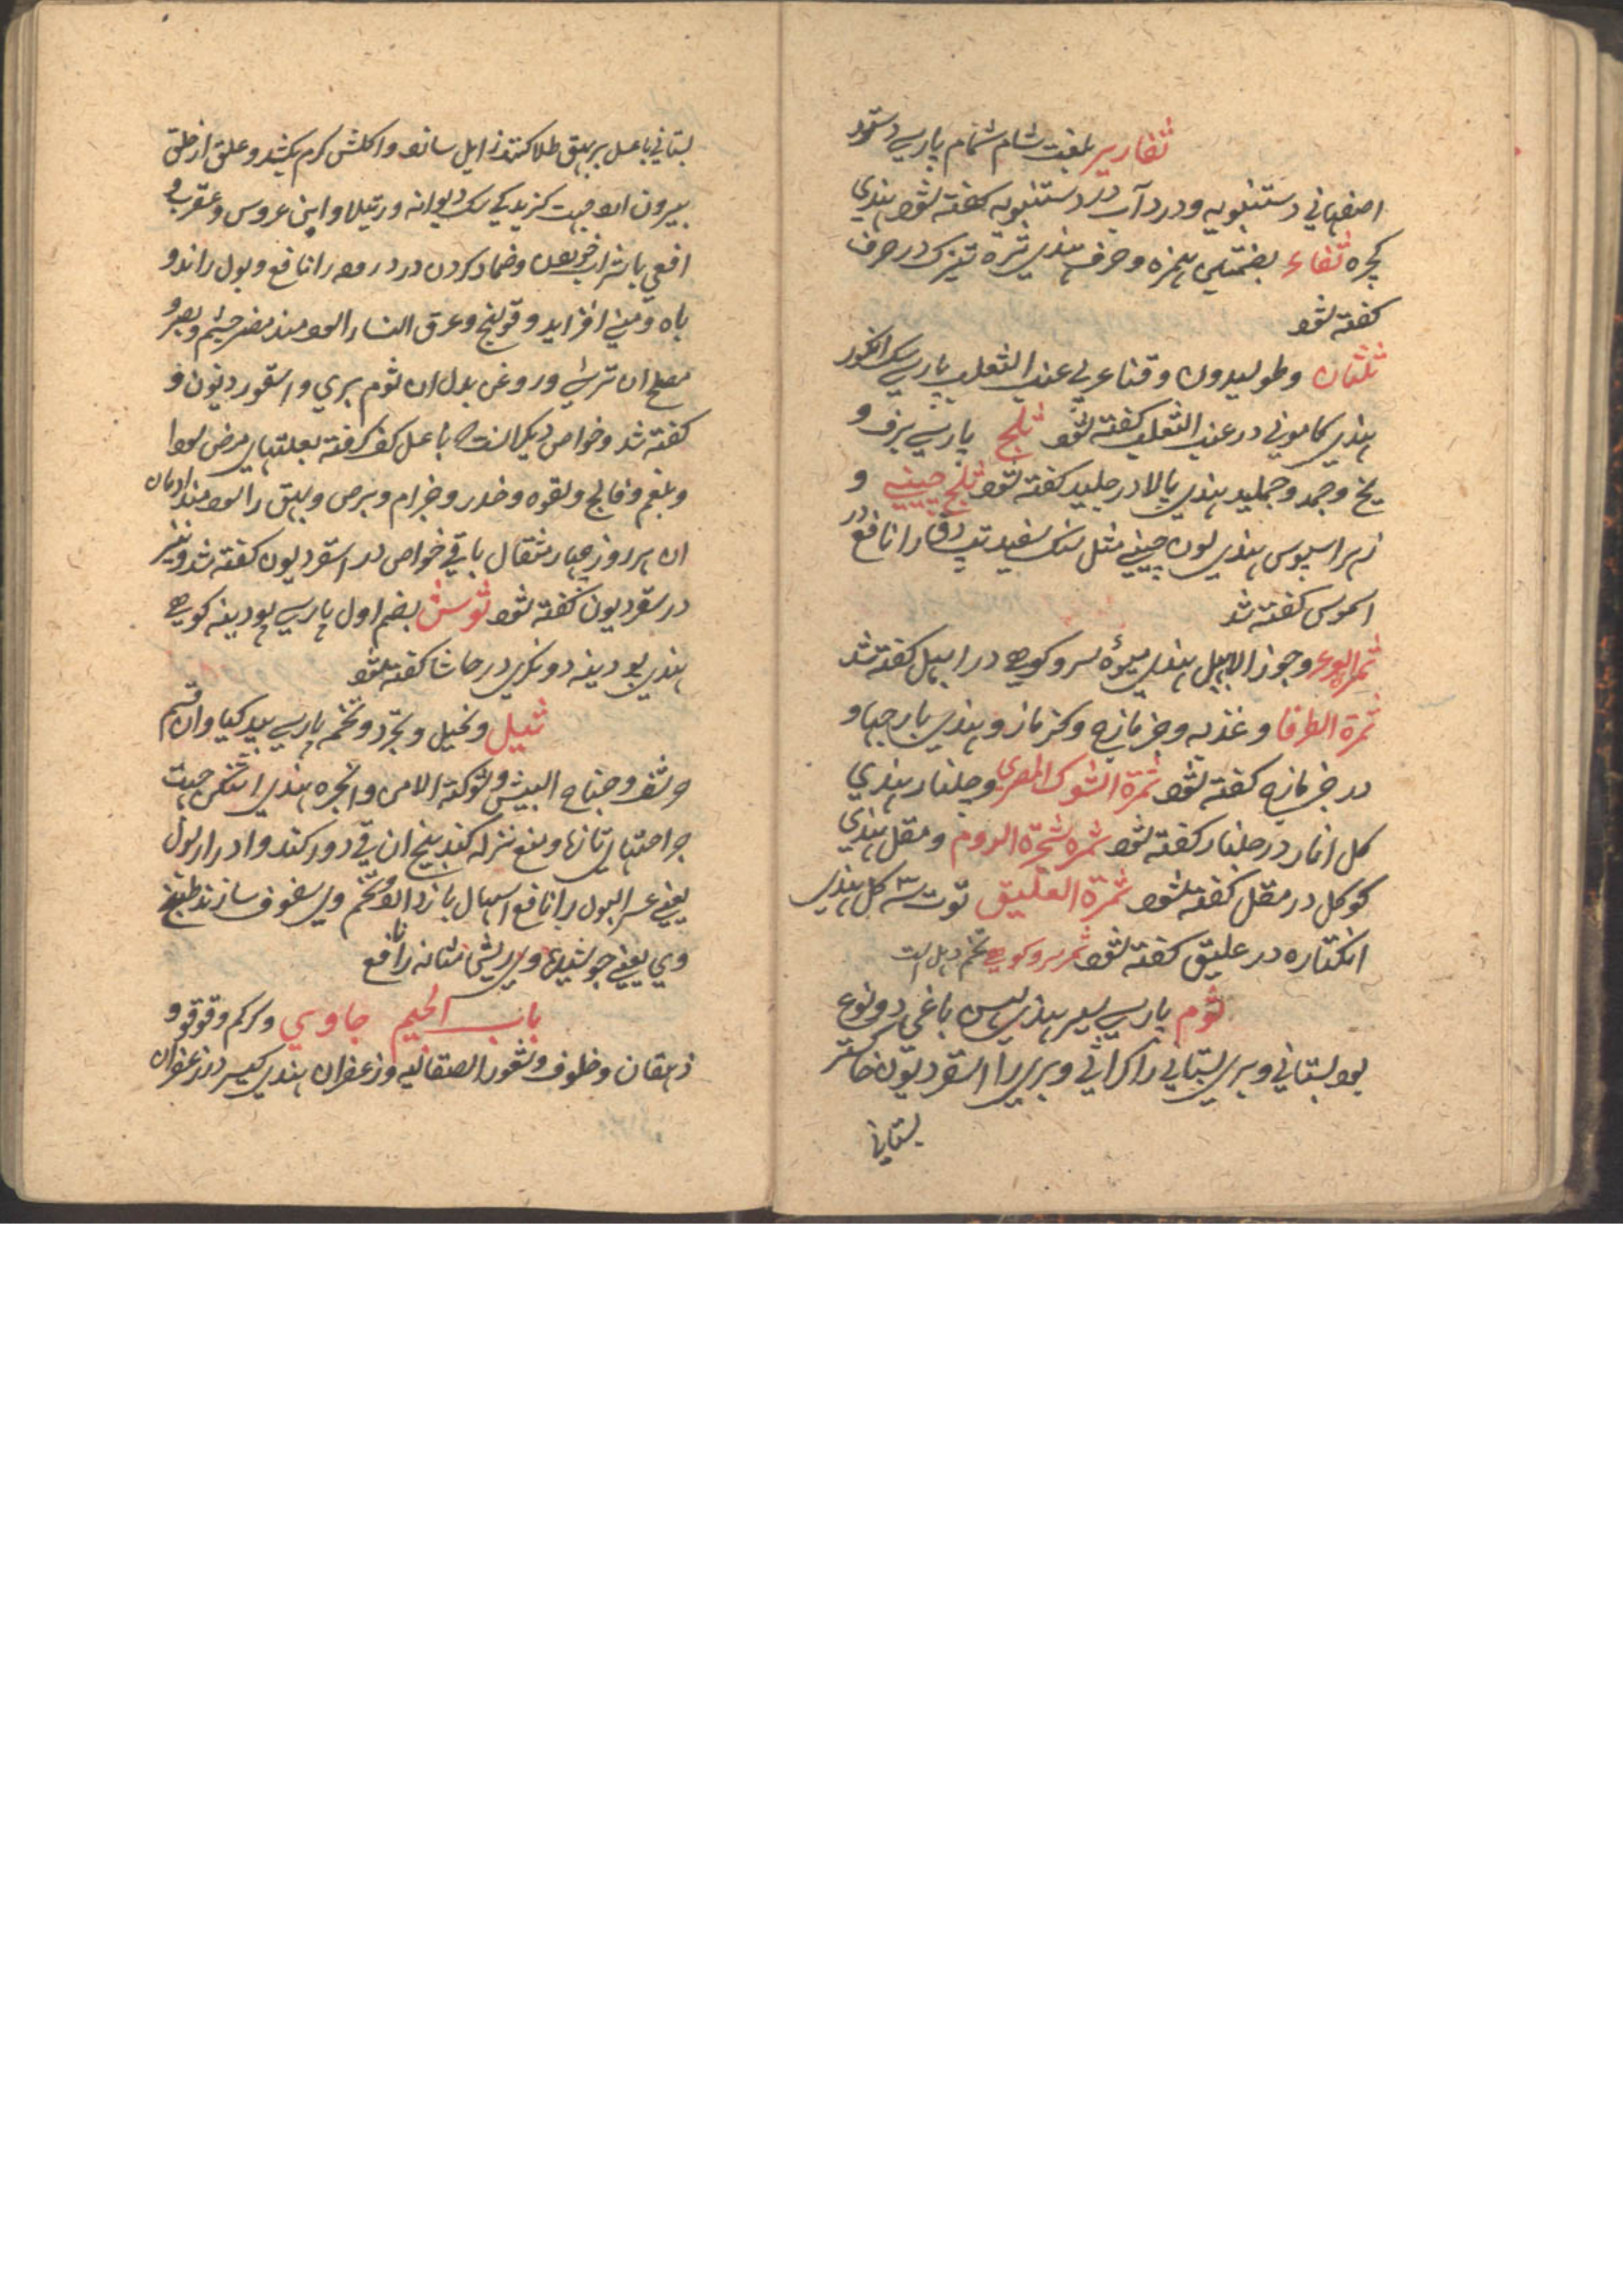 ثفاریر بلغت شام شمام پارسی دستود
اصفهانی دستنبویه و در دآب در دستنبویه کفته شود هندی
کچره ثفاء بضمتین همزه و حرف هندی تره تیزک در حرف
کفته شود
ثلثان و طولیدون و قنا عربی عنب الثعلب پارسی سک انکور
هندی کامونی در عنب الثعلب کفته شود ثلج پارسی برف و
یخ و جمد و جملید هندی پالا در جلید کفته شود ثلج چینی و
زهر اسیوس هندی لون چینی مثل سنک سفید تپ دق را نافع در
اسموس کفته شد
ثمر العرعر و جوز الابهل هندی میوهٔ سرو کوهی در ابهل کفته شد
ثمرة الطرفا و عذبه و جزمازج و کزمازو هندی بار جهاو
در جزمازج کفته شود ثمرة الشوک المصری و جلنار هندی
کل انار در جلنار کفته شود ثمره شجرة الدوم و مقل هندی
کوکل در مقل کفته شود ثمرة العلیق توت سه کل هندی
انکتاره در علیق کفته شود ثمر سرو کوهی تخم دهل است
ثوم پارسی سیر هندی لهسن باغی دو نوع
بود بستانی و بری بستانی را کراثی و بری را اسقردیون خاکستر
بستانی
بستانی با عسل بر بهق طلا کنند زایل سازد و اکلش کرم بکشد و علق از حلق
بیرون ارد جهت کزیدکی سک دیوانه و رتیلا و ابن عروس و عقرب و
افعی با شراب خوردن و ضماد کردن درد معده را نافع و بول راند و
باه و منی افزاید و قولنج و عرق النساء را سودمند مضر چشم و بصر و
مصلح ان ترشی و روغن بدل ان ثوم بری و اسقوردیون و
کفته شد و خواص دیکر انست که با عسل کف کرفته بعلتهای مرض سودا
و بلغم و فالج و لقوه و خدر و جذام و برص و بهق را سودمند ادمان
ان هر روز چهار مثقال باقی خواص در اسقردیون کفته شد و نیز
در سقردیون کفته شود ثوسش بضم اول پارسی پودینه کوهی
هندی پودینه دونکری در حاشا کفته شود
ثیل و نخیل و نجرد و نخم پارسی بید کیا و ان قسم
حرشف و جناح البیش و شوکة الامن و انجره هندی جهت
جراحتهای تازه و منع نزله کند بیخ ان قی دور کند و ادرار بول
یعنی عسر البول را نافع اسهال باز دارد و تخم وی سفوف سازند طبیخ
وی یعنی جوشیدها وی ریش مثانه را نافع
باب الجیم جاوی و کرکم و قوقوو
ذهقان و خلوف و شعور الصقالبه و زعفران هندی کیسر در زعفران